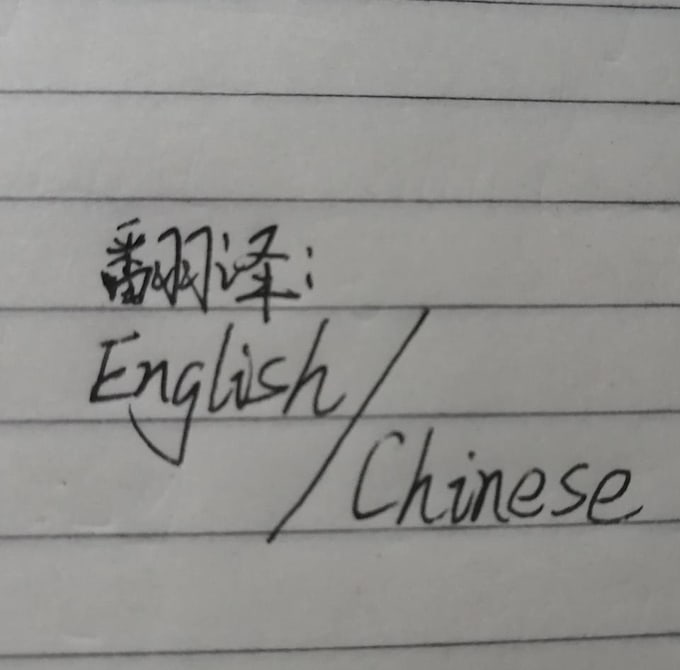 翻译:
English/
Chinese